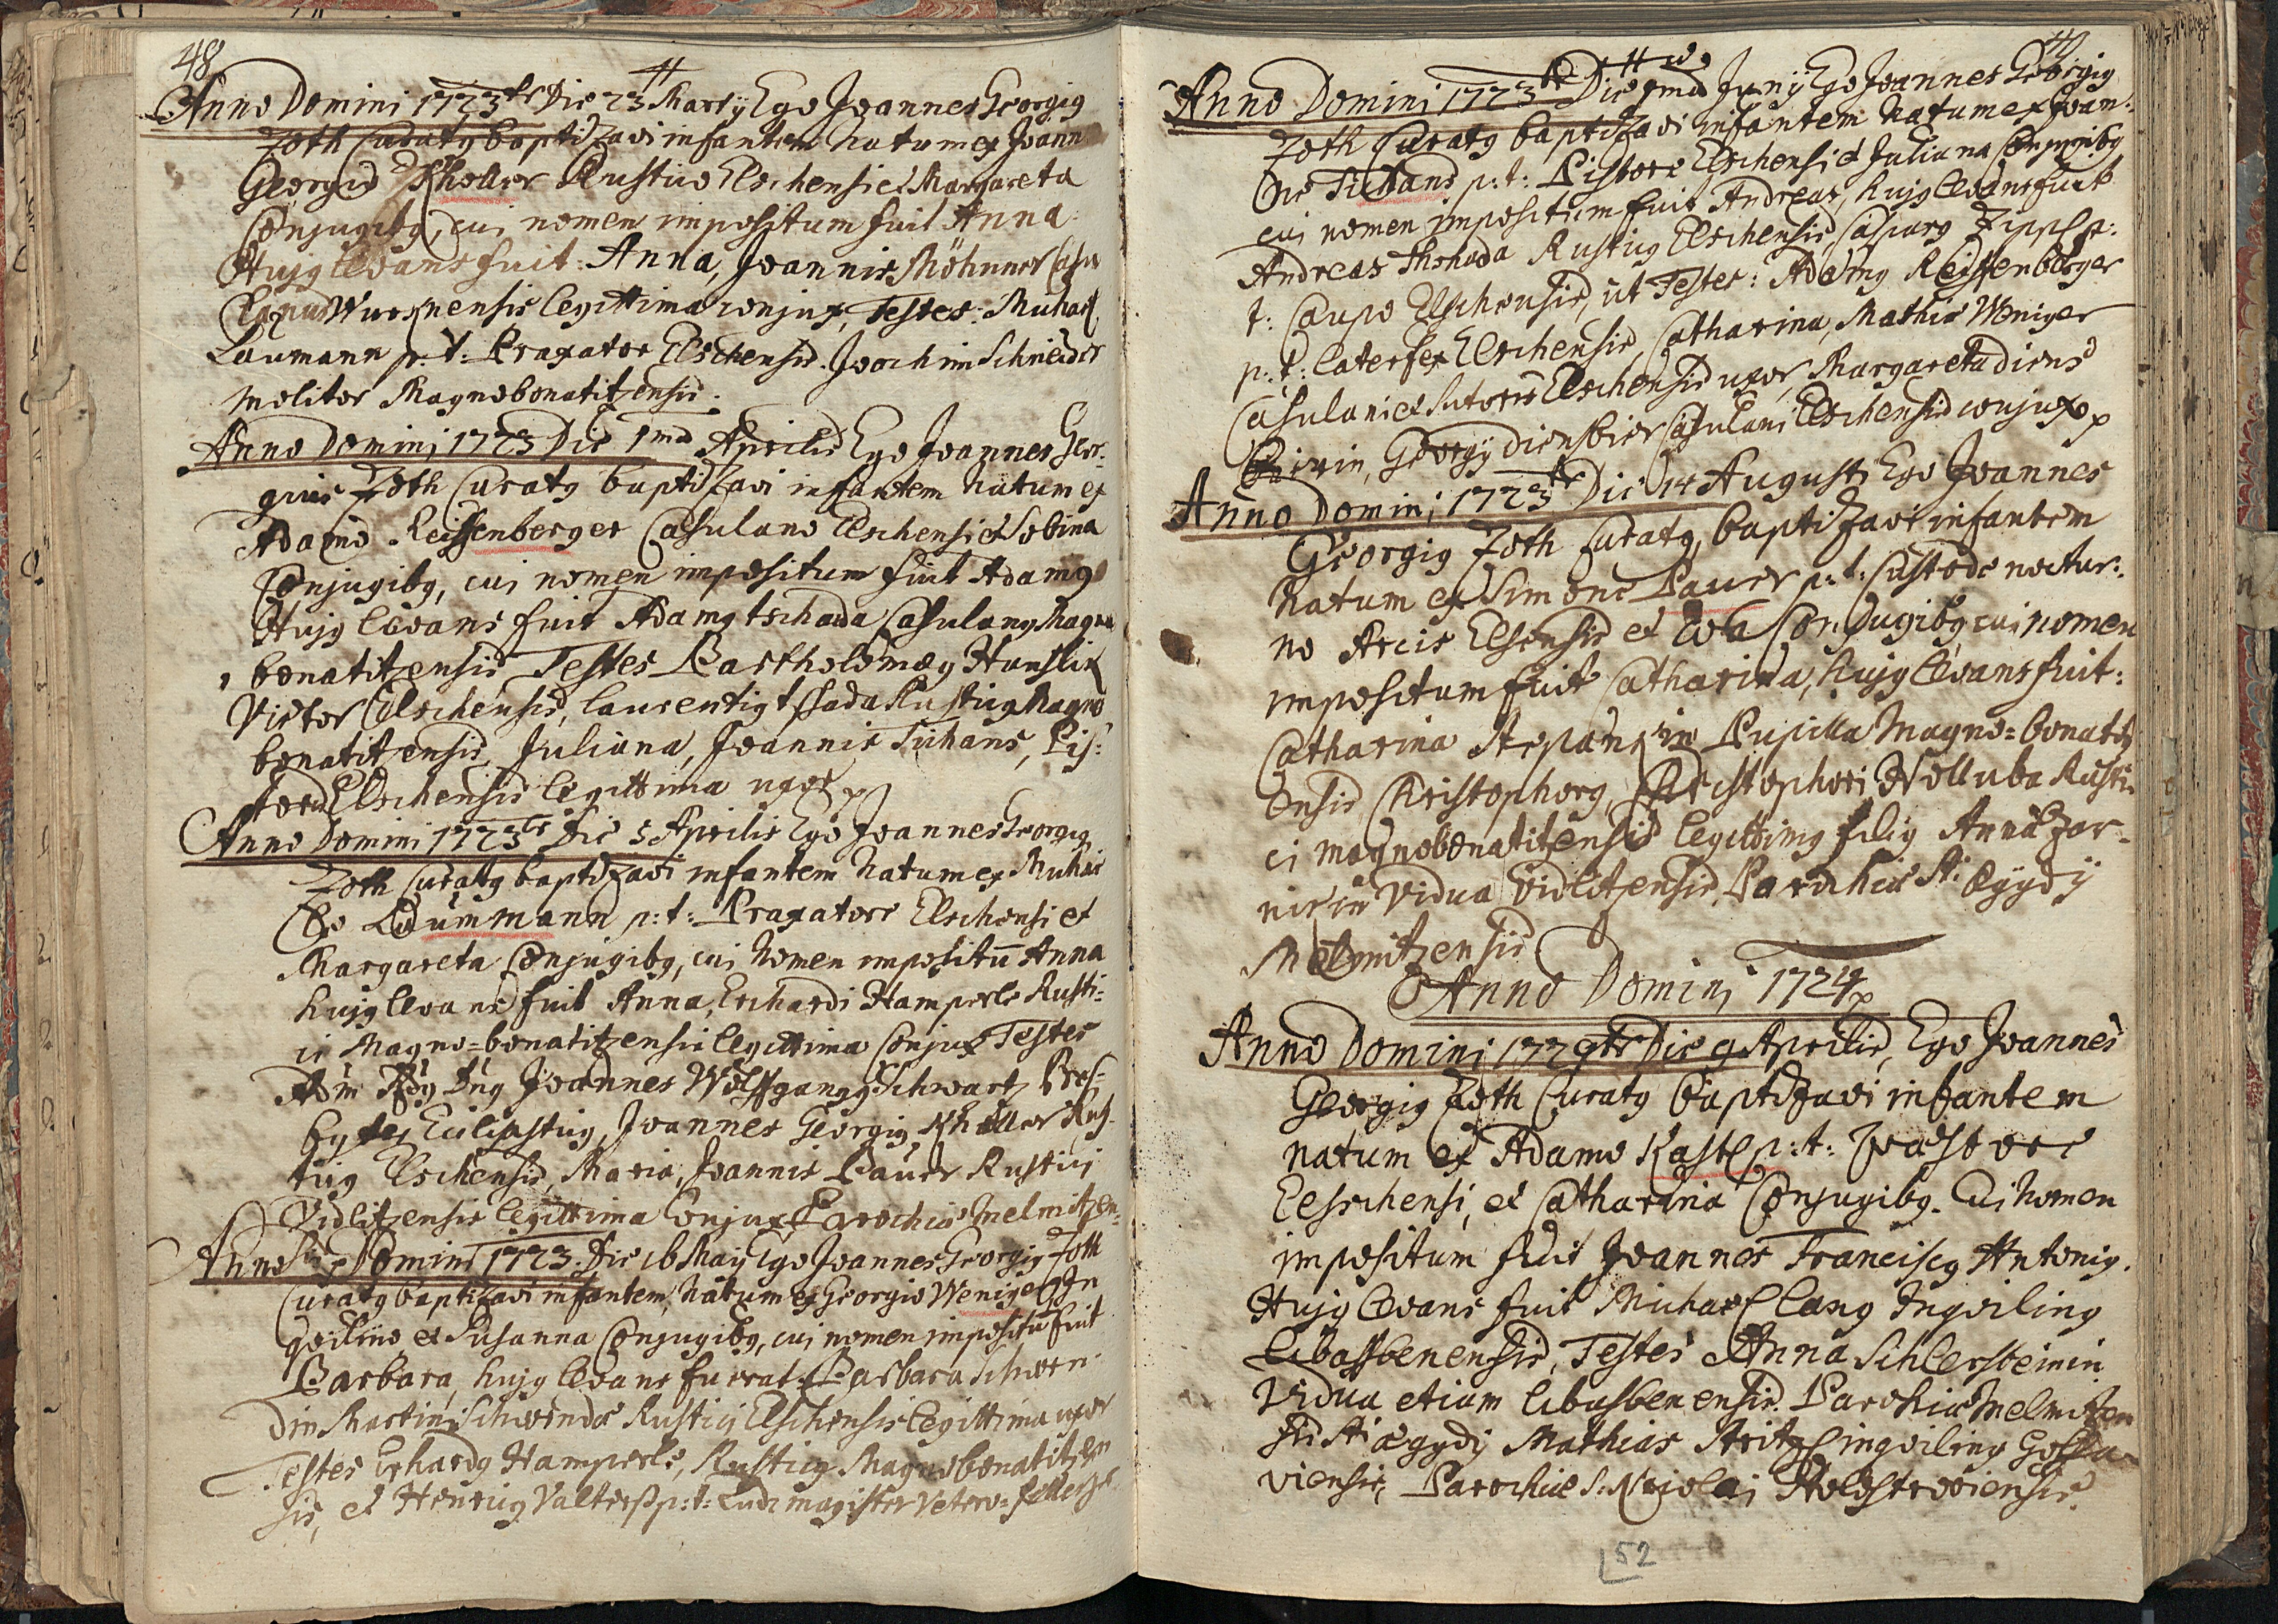 48
Anno Domini 1723 Die 23 Martij Ego Joannes Georgig
Zoth Curatg baptizavi infantem natum ex Joann
Georgio Kholler Rustico Elschensi et Margareta
Conjugibg, cui nomen impositum fuit Anna
Hujg levans fuit: Anna, Joannis Möhnner Casu
legitima conjux, Testes: Michael
Laumann p: t: Braxator Elschensis. Joachim Schneider
Molitor Magnobonatitzensis.
Anno Domini 1723 Die 1ma Aprilis Ego Joannes Geor:
gius Zoth Curatg baptizavi infantem Natum ex
Adamo Reissenberger Casulano Elschensi et Sabina
Conjugibg, cui nomen impositum fuit Adamg
Hujg levans fuit Adamg tschada Casulang Magno
bonatitzensis Testes Bartholomæg Hanslik
Victor Elschensis, Laurentig tschada Rusticg Magno
bonatitzensis, Juliana, Joannis Tichans, Pis:
toris Elschensis legittima uxor
Anno Domini 1723 Die 5 Aprilis Ego Joannes Georgig
Zoth Curatg baptizavi infantem Natum ex Michae
le Laummann p: t: Braxatore Elschensi et
Margareta Conjugibg, cui Nomen impositū Anna
hujg levans fuit Anna, Erhardi Hamperle Rusti:
ci Magno=bonatitzensis legittima Conjux Testes
Joannes Wolffgangg Schwartz Pres:
byter Joannes Georgig Kholler Rus
ticg Elschensis, Maria, Joannis Bauer Rustici
Vidlitzensis legittima conjux Parochiæ Melmitzen:
Anno Domini 1723. Die 16 Maij Ego Joannes Georgig Zoth
Curatg baptizavi infantem, Natum ex Georgio Weniger In
qvilino et Susanna Conjugibg, cui nomen impositū fuit
Barbara, hujg levans fuerat Barbara Schwen
din Martini Schwenda Rustici Elschensis legittima uxor
Testes Erhardg Hamperle, Rusticg Magnobonatitzen
sis, et Henricg Valterss p: t: Ludi magister Vetero=
Anno Domini 1723 Die 1ma Junij Ego Joannes Georgig
Zoth Curatg baptizavi infantem Natum ex Joan:
ne Tichans p: t: Pistore Elschensi et Juliana Conjugibg
cui nomen impositum fuit Andreas, hujg levans fuit
Andreas Rusticg Elschensis, Casparg Zippl p:
t: Caupo Elschensis, ut Testes: Adamg Reissenberger
p: t: Laterfex Elschensis, Catharina, Mathiæ Weniger
Casulani et Sutoris Elschensis uxor, Margareta diens
birin, Georgij diensbier Casulani Elschensis conjux
Anno Domini 1723 Die 14 Augusti Ego Joannes
Georgig Zoth Curatg, baptizavi infantem
Natum ex Simone Bauer p: t: Custode noctur:
no Arcis Elsensis et Eva Conjugibg cui nomen
impositum fuit Catharina, hujg levans fuit:
Catharina Pupilla Magno=bonatitz
ensis Christophorg, Christophori Holluba Rusti
ci magnobonatitzensis legittimg filig Anna Zar
nirin Vidua Vidlitzensis, Parochiæ St: Ægydij
Melmitzensis
Anno Domini 1724
Anno Domini 1724 Die 9 Aprilis, Ego Joannes
Georgig Zoth Curatg baptizavi infantem
natum ex Adamo Kastl p: t:
Elsschensi, et Catharina Conjugibg. Cui Nomen
impositum fuit Joannes Franciscg Antonig.
Hujg levans fuit Michael Lang Inqviling
Testes Anna Schlersteinin
Vidua etiam Parochiæ Melmitzen
sis Sti ægydij Mathias inqviling
viensis, Parochiæ S: Nicolai
52